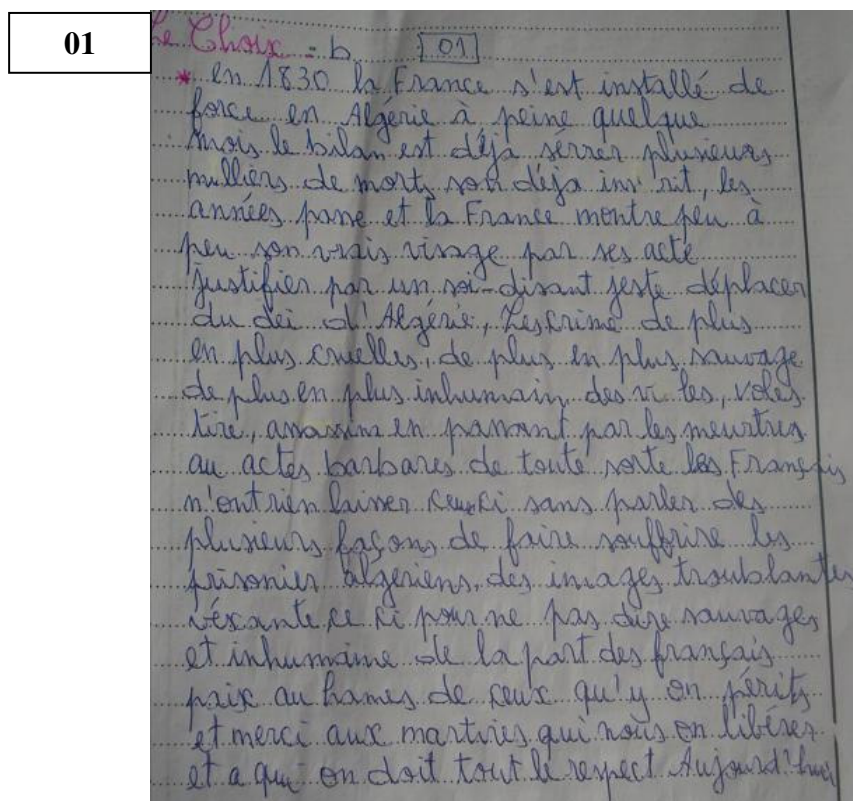 01
Le Choix = b 01
* en 1830 la France s'est installé de
force en Algérie à peine quelque
mois le bilan est déja sérrer plusieurs
milliérs de morts son déja ins rit, les
années passe et la France montre peu à
peu son vrais visage par ses acte
justifier par un soi-disant jeste déplacer
du dei d'Algérie, Les crime de plus
en plus cruelles, de plus en plus sauvage
de plus en plus inhumain, des vi les, voles
tire, assassim en passant par les meurtres
au actes barbares de toute sorte les Français
n'ont rien laisser ceux ci sans parler des
plusieurs façons de faire souffrire les
prisonier algériens, des images troublantes
véxante ce ci pour ne pas dire sauvages
et inhumaine de la part des français
paix au hames de ceux qu'y on périts
et merci aux martries qui nous on libéres
et a qui on doit tout le respect Aujourd'hui